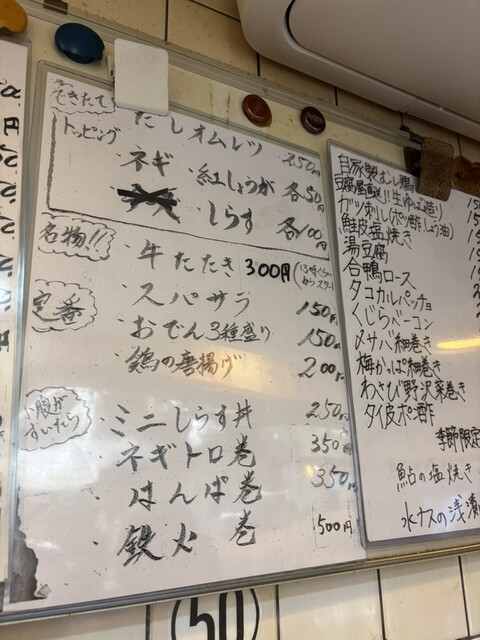 できたて!
だしオムレツ 250円
トッピング
ネギ 紅しょうが 各50円
しらす 各100円
名物!!
牛たたき 300円
定番
スパサラ 150円
おでん3種盛り 150円
鶏の唐揚げ 200円
腹がすいたら
ミニしらす丼 250円
ネギトロ巻 350円
はんぱ巻 350円
鉄火巻 500円
自家製むし鶏
ガツ刺し(ポン酢 しょう油)
鮭皮塩焼き
湯豆腐
合鴨ロース
タコカルパッチョ
くじらベーコン
〆サバ細巻き
梅かっぱ細巻き
わさび野沢菜巻き
タイ皮ポン酢
季節限定
鮎の塩焼き
水ナスの浅漬
50